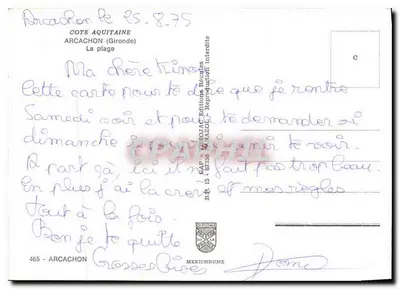 Arcachon le 25.8.75
COTE AQUITAINE
ARCACHON (Gironde)
La plage
Ma chère
Cette carte pour te dire que je rentre
Samedi soir et pour te demander si
dimanche je venir te voir.
A part ça, ici il ne fait pas trop beau.
En plus j'ai la crève et mes règles
tout à la fois.
Bon je te quitte
Grosses Bises
465 - ARCACHON
MEXICHROME
Reproduction Interdite
C